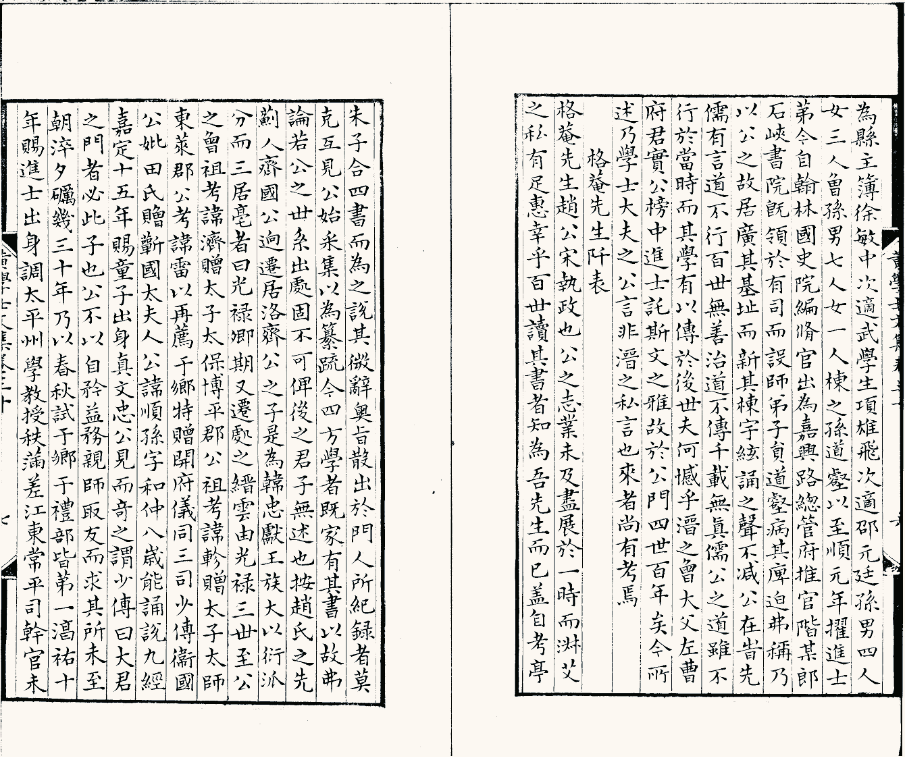 為縣主簿徐敏中次適武學生項雄飛次適邵元廷孫男四人
女三人曾孫男七人女一人棟之孫道壑以至順元年擢進士
弟今自翰林國史院編脩官出為嘉興路總管府推官階某郎
石峽書院旣領於有司而設師弟子員道壑病其庳迫弗稱乃
以公之故居廣其基址而新其棟宇絃誦之聲不减公在旹先
儒有言道不行百世無善治道不傳千載無真儒公之道雖不
行於當時而其學有以傳於後世夫何憾乎溍之曾大父左曹
府君實公榜中進士託斯文之雅故於公門四世百年矣今所
述乃學士大夫之公言非溍之私言也來者尚有考焉
格菴先生阡表
格菴先生趙公宋執政也公之志業未及盡展於一時而淑艾
之私有足惠幸乎百世讀其書者知為吾先生而已蓋自考亭
朱子合四書而為之說其微辭奧旨散出於門人所紀錄者莫
克互見公始采集以為纂疏今四方學者既家有其書以故弗
論若公之世系出處固不可俾後之君子無述也按趙氏之先
薊人齊國公迥遷居洛齊公之子是為韓忠獻王族大以衍派
分而三居亳者曰光祿卿期又遷處之縉雲由光祿三世至公
之曾祖考諱濟贈太子太保博平郡公祖考諱軫贈太子太師
東萊郡公考諱雷以再薦于鄉特贈開府儀同三司少傅衞國
公妣田氏贈蘄國太夫人公諱順孫字和仲八歲能誦說九經
嘉定十五年賜童子出身真文忠公見而竒之謂少傅曰大君
之門者必此子也公不以自矜益務親師取友而求其所未至
朝淬夕礪幾三十年乃以春秋試于鄉于禮部皆第一淳祐十
年賜進士出身調太平州學教授秩滿差江東常平司幹官未